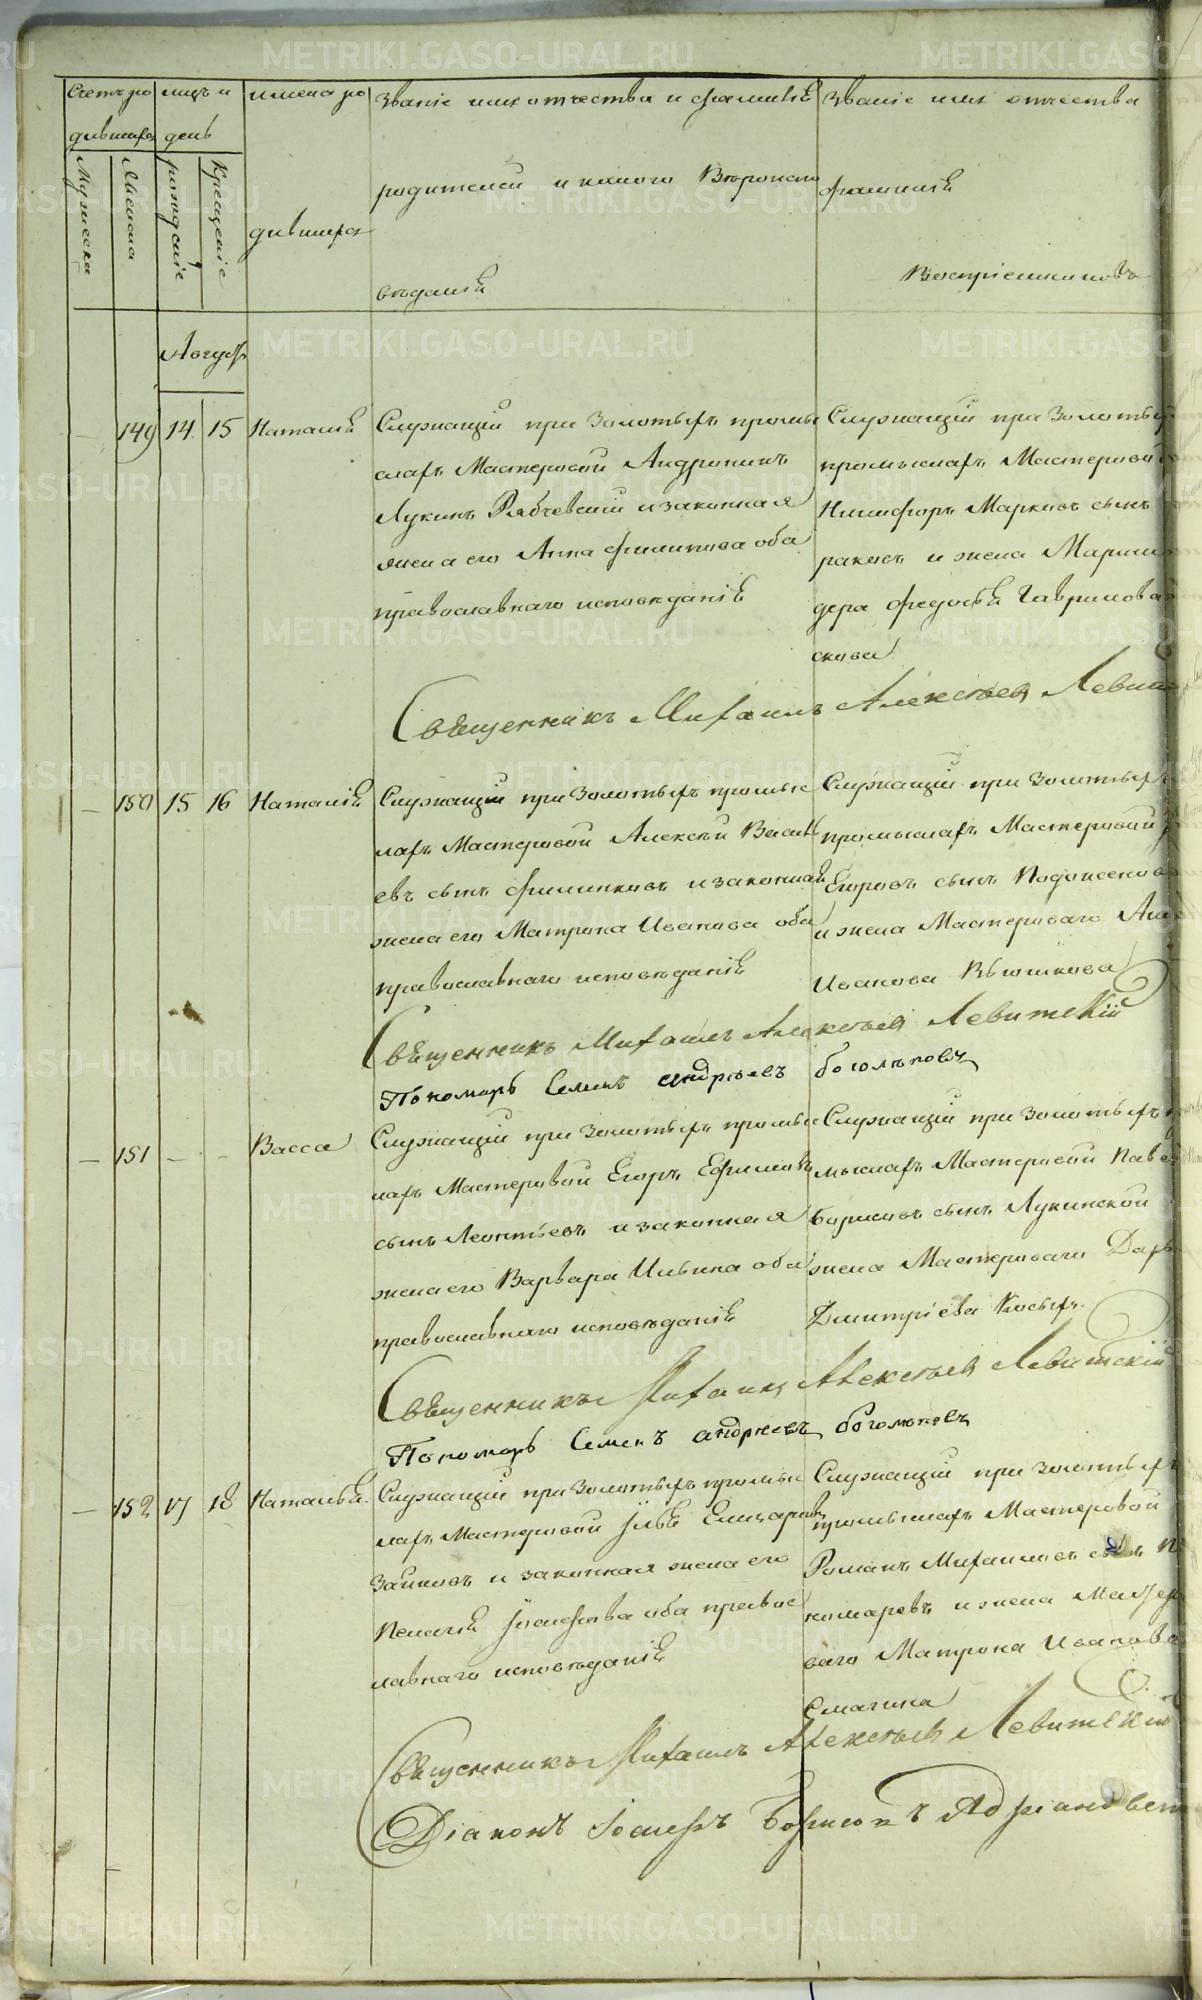 Счетъ ро
дившихся
Мужеска
Женска
мцъ и
день
рожденіе
Крещеніе
имена ро
дившихся
Званіе имя отчества и фамилія
родителей и какого Вѣроиспо
вѣданія
Званіе имя отчества
фамилія
Воспріемниковъ
Августъ
149 14 15 Наталія
Служащій при Золотыхъ промы
слахъ Мастеровой Андроникъ
Лукинъ Рябчевскій и законная
жена его Анна Филипова оба
православнаго исповѣданія
Служащій при Золотых
промыслахъ Мастеровой
Никифоръ Марковъ сынъ
и жена
дера Федосья Гаврилова
скова
Священникъ Михаилъ Алексѣевъ Левит
— 150 15 16 Наталія
Служащій при Золотыхъ промыс
лахъ Мастеровой Алексѣй Василь
евъ сынъ Филипковъ и законная
жена его Матрона Иванова оба
православнаго исповѣданія
Служащій при Золотыхъ
промыслахъ Мастеровой
Егоровъ сынъ Подоксенов
и жена Мастероваго
Иванова Вьюшкова
Священникъ Михаилъ Алексѣевъ Левитскій
Пономарь Семенъ андрѣевъ боголѣповъ
— 151 — — Васса
Служащій при Золотыхъ промыс
лахъ Мастеровой Егоръ Ефимовъ
сынъ Леонтьевъ и законная
жена его Варвара Ильина оба
православнаго исповѣданія
Служащій при Золотыхъ
мыслахъ Мастеровой Паве
Борисовъ сынъ Лукинской
жена Мастероваго Дарь
Дмитріева Косых
Священникъ Михаилъ Алексѣевъ Левитскій
Пономарь Семенъ андрѣевъ боголѣповъ
— 152 17 18 Наталья
Служащій при Золотыхъ промыс
лахъ Мастеровой Илья Елизаровъ
Заиковъ и законная жена его
Пелагія Іосифова оба правос
лавнаго исповѣданія
Служащій при Золотых
промыслахъ Мастеровой
Романъ Михаиловъ сынъ По
номаревъ и жена Мастер
ваго Матрона Иванова
Смагина
Священникъ Михаилъ Алексѣевъ Левитскій
Діаконъ Іосифъ Борисовъ Адріановск
METRIKI.GASO-URAL.RU